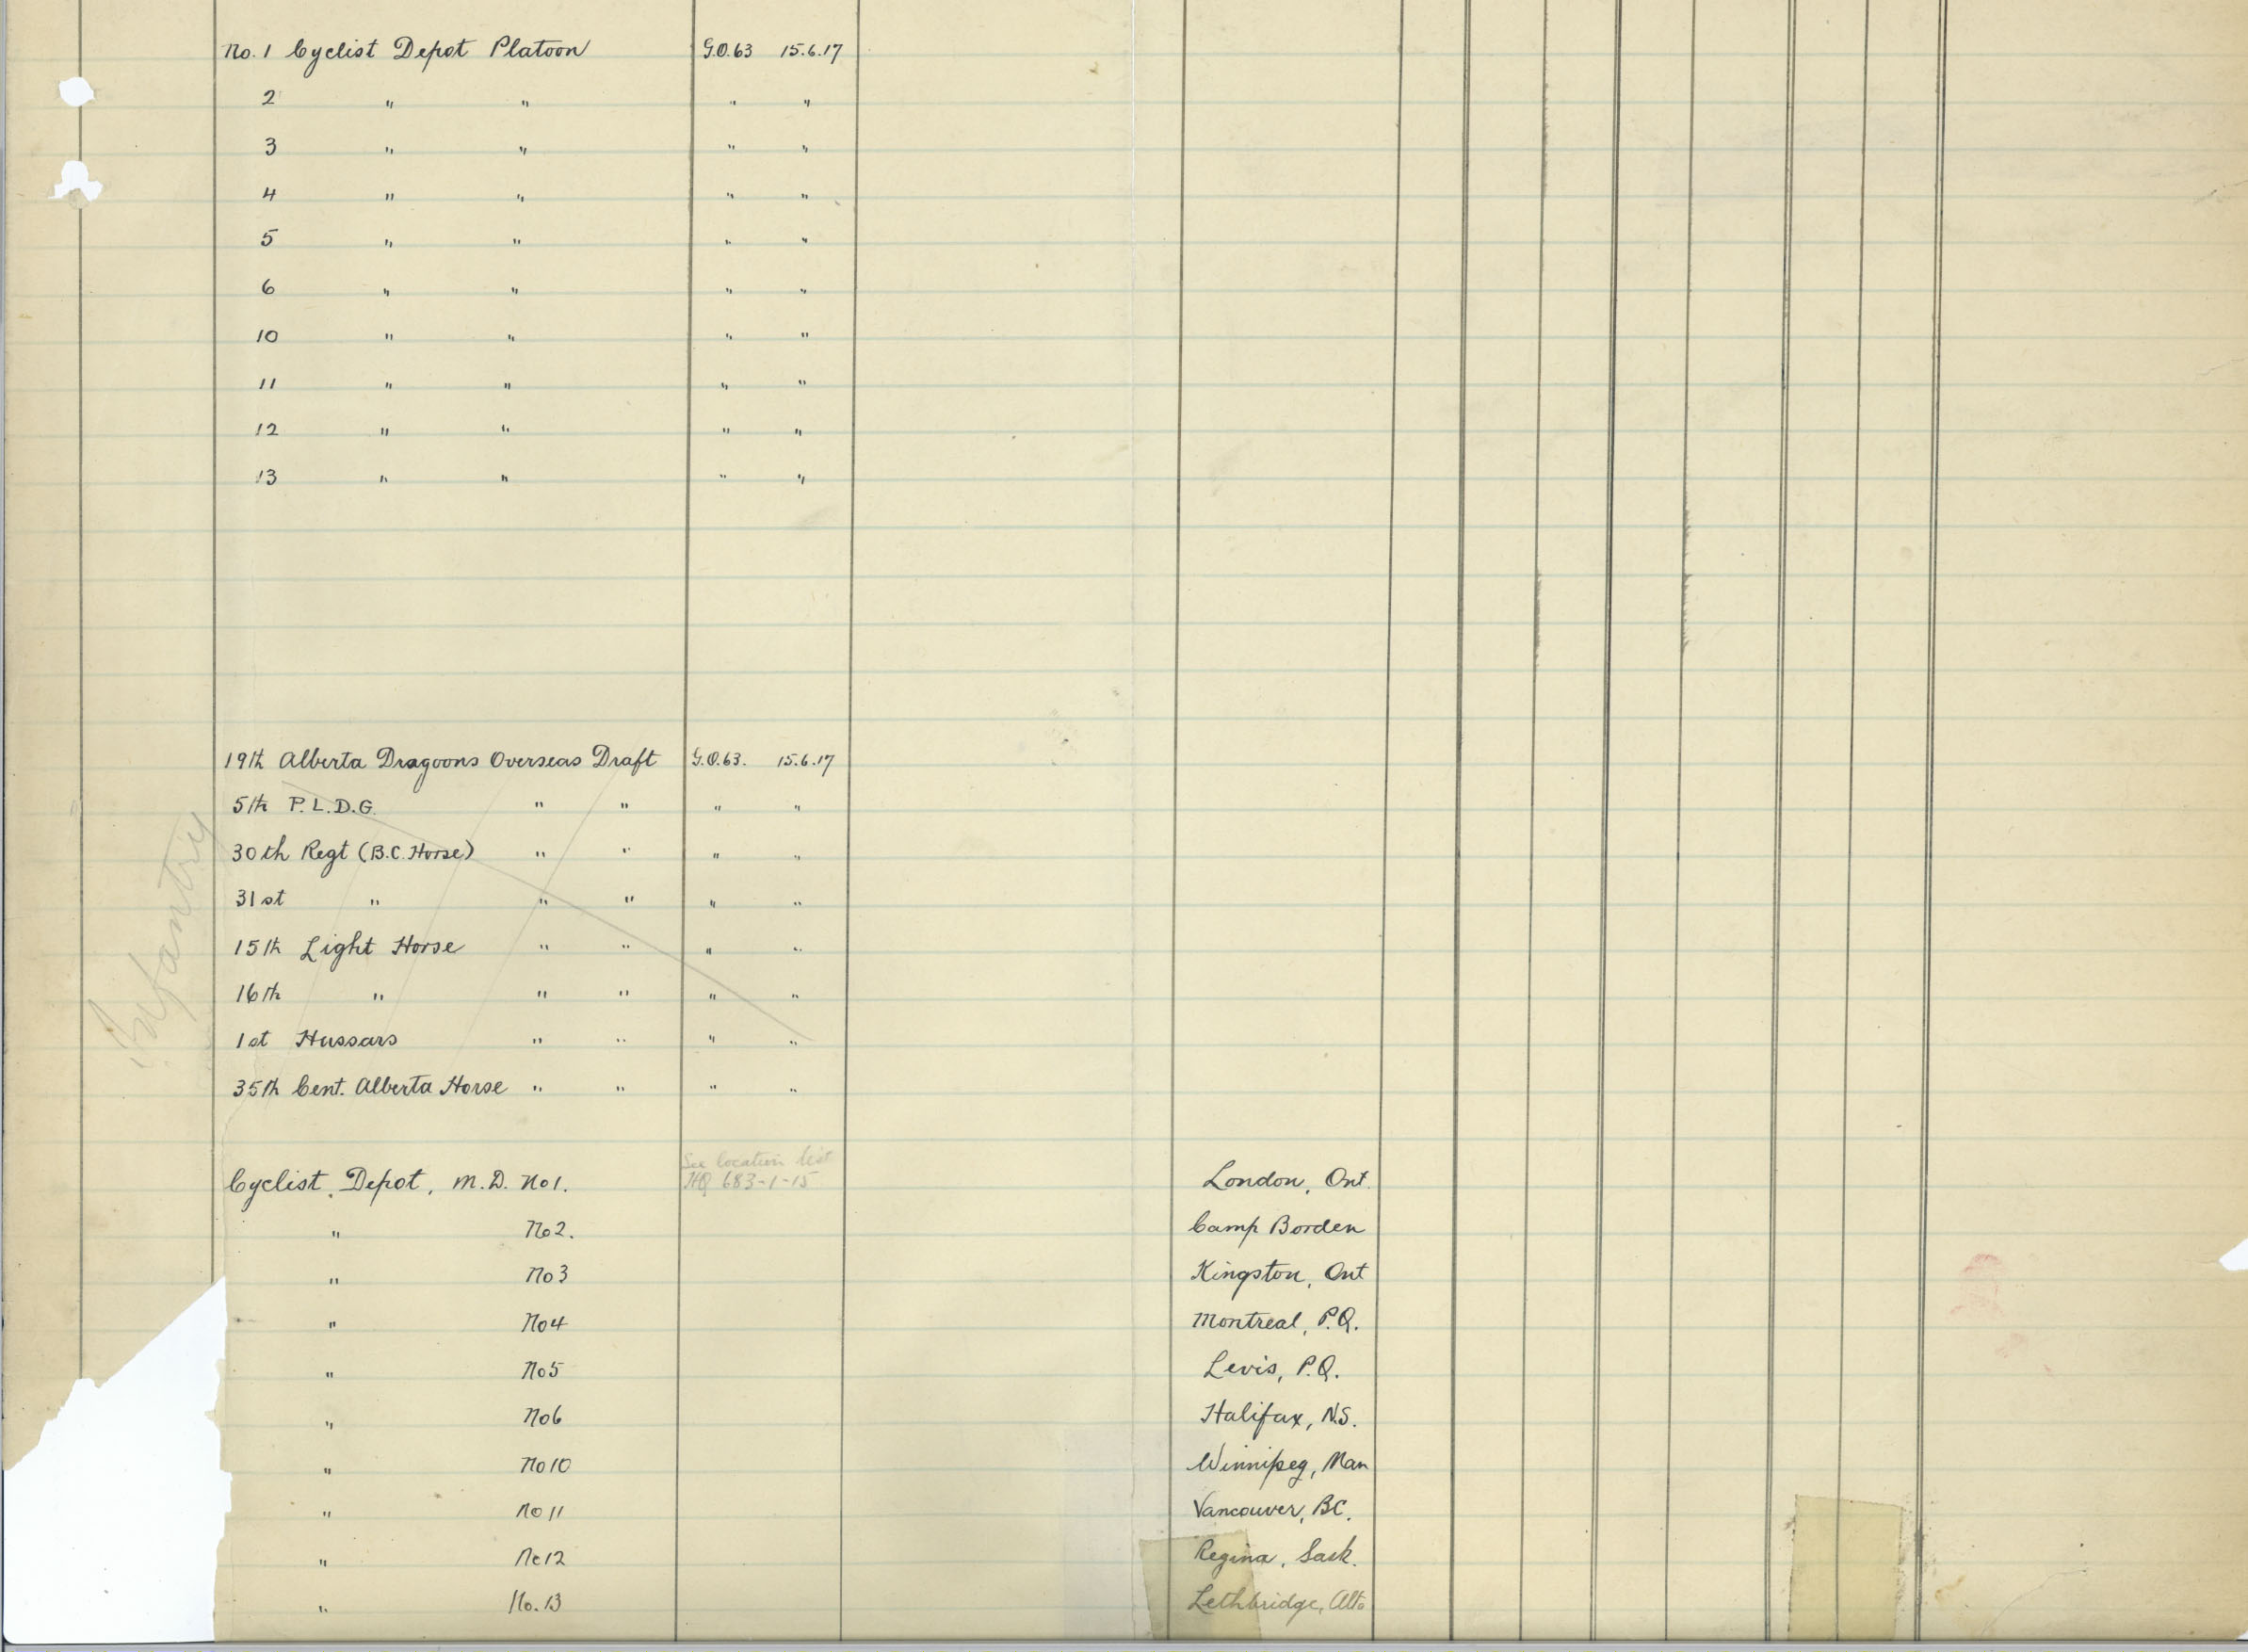 No. 1 Cyclist Depot Platoon G.O.63 15.6.17
2 " " " "
3 " " " "
4 " " " "
5 " " " "
6 " " " "
10 " " " "
11 " " " "
12 " " " "
13 " " " "
19th Alberta Dragoons Overseas Draft G.O.63. 15.6.17
5th P.L.D.G. " " " "
30th Regt (B.C. Horse) " " " "
31st " " " " "
15th Light Horse " " " "
16th " " " " "
1st Hussars " " " "
35th Cent. Alberta Horse " " " "
Infantry
See location list
HQ 683-1-15
Cyclist, Depot, M.D. No1. London, Ont.
" No2. Camp Borden
" No3 Kingston, Ont
" No4 Montreal, P.Q.
" No5 Levis, P.Q.
" No6 Halifax, N.S.
" No10 Winnipeg, Man
" No11 Vancouver, BC.
" No12 Regina, Sask.
" No.13 Lethbridge, Alta